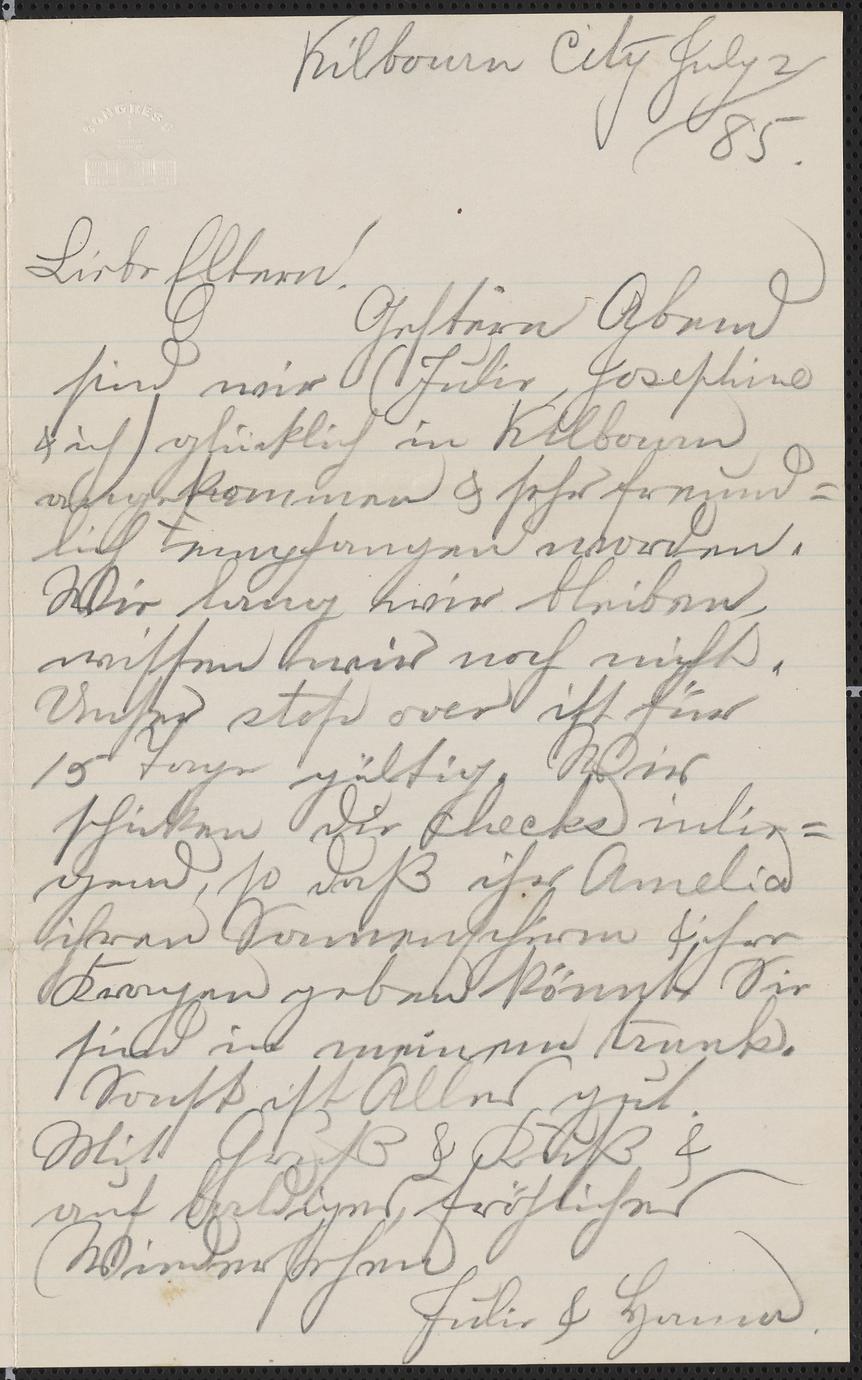 CONGRESS
Kilbourn City July 2
/85.
Liebe Eltern!
Gestern Abend
sind wir (Julie, Josephine
& ich) glücklich in Kilbourn
angekommen & sehr freund=
lich empfangen worden.
Wie lang wir bleiben,
wissen wir noch nicht.
Unser stop over ist für
15 Tage gültig. Wir
schicken die checks inlie=
gend, so daß ihr Amelia
ihren Sonnenschirm & ihre
Kragen geben könnt. Sie
sind in meinem trunk.
Sonst ist Alles gut.
Mit Gruß & Kuß &
auf baldiges, fröhliches
Wiedersehen
Julie & Hanna.